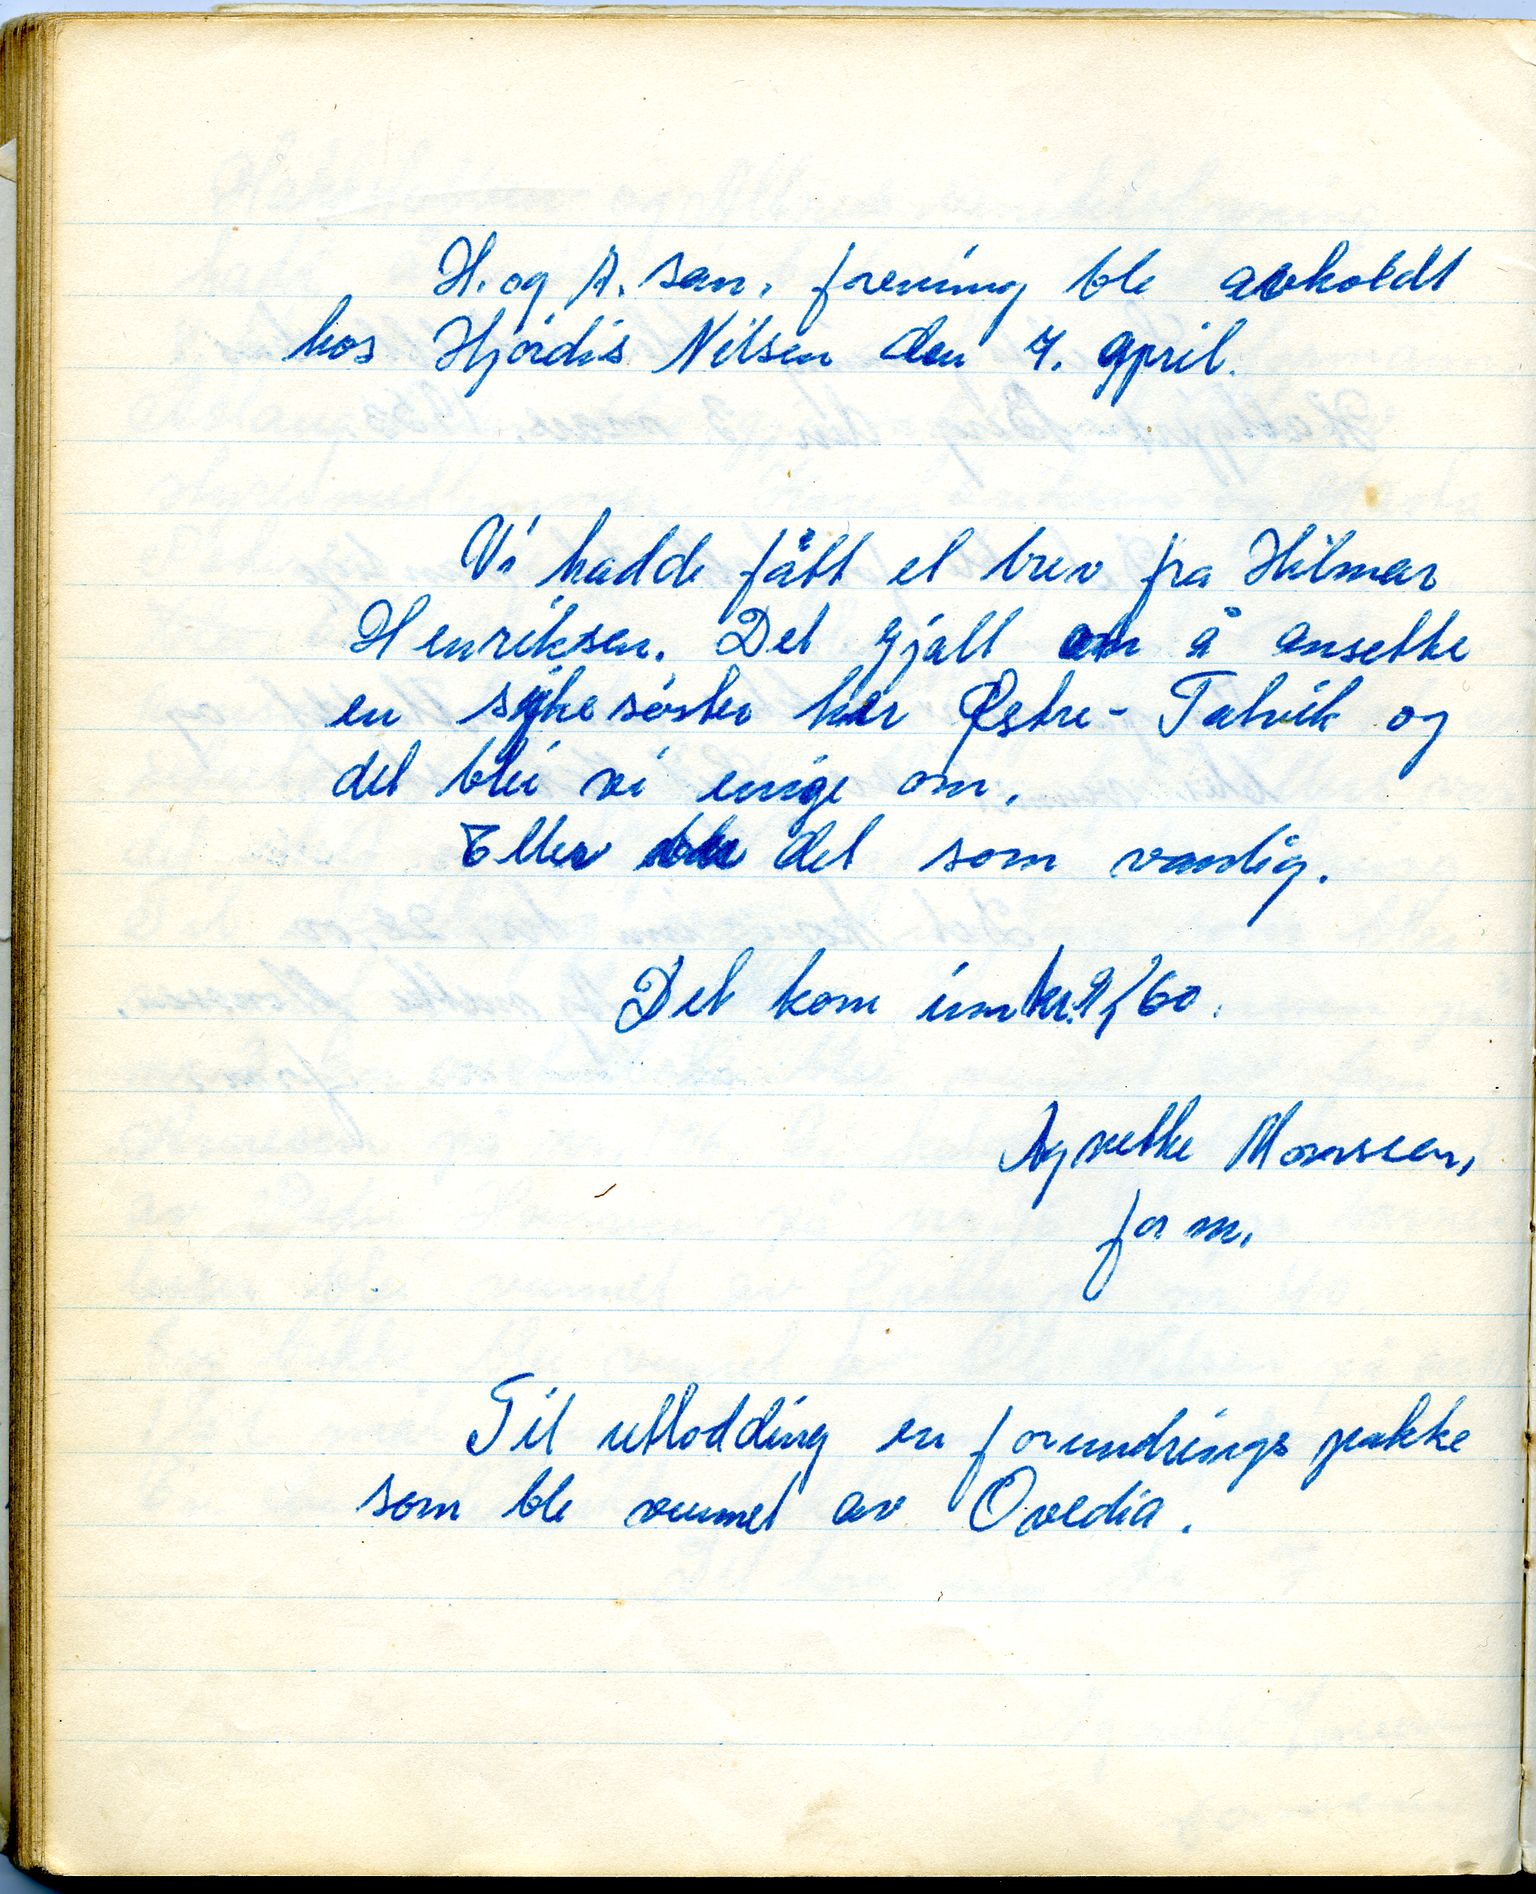 H. og A. san. forening ble avholdt
hos Hjørdis Nilsen den 7. april.
Vi hadde fått et brev fra Hilmar
Henriksen. Det gjalt om å ansette
en sykesøster her Østre-Talvik og
det blei vi enige om.
Eller ble det som vanlig.
Det kom inn kr. 9,60.
Agnethe Monssen,
form.
Til utlodding en forundrings pakke
som ble vunnet av Ovedia.